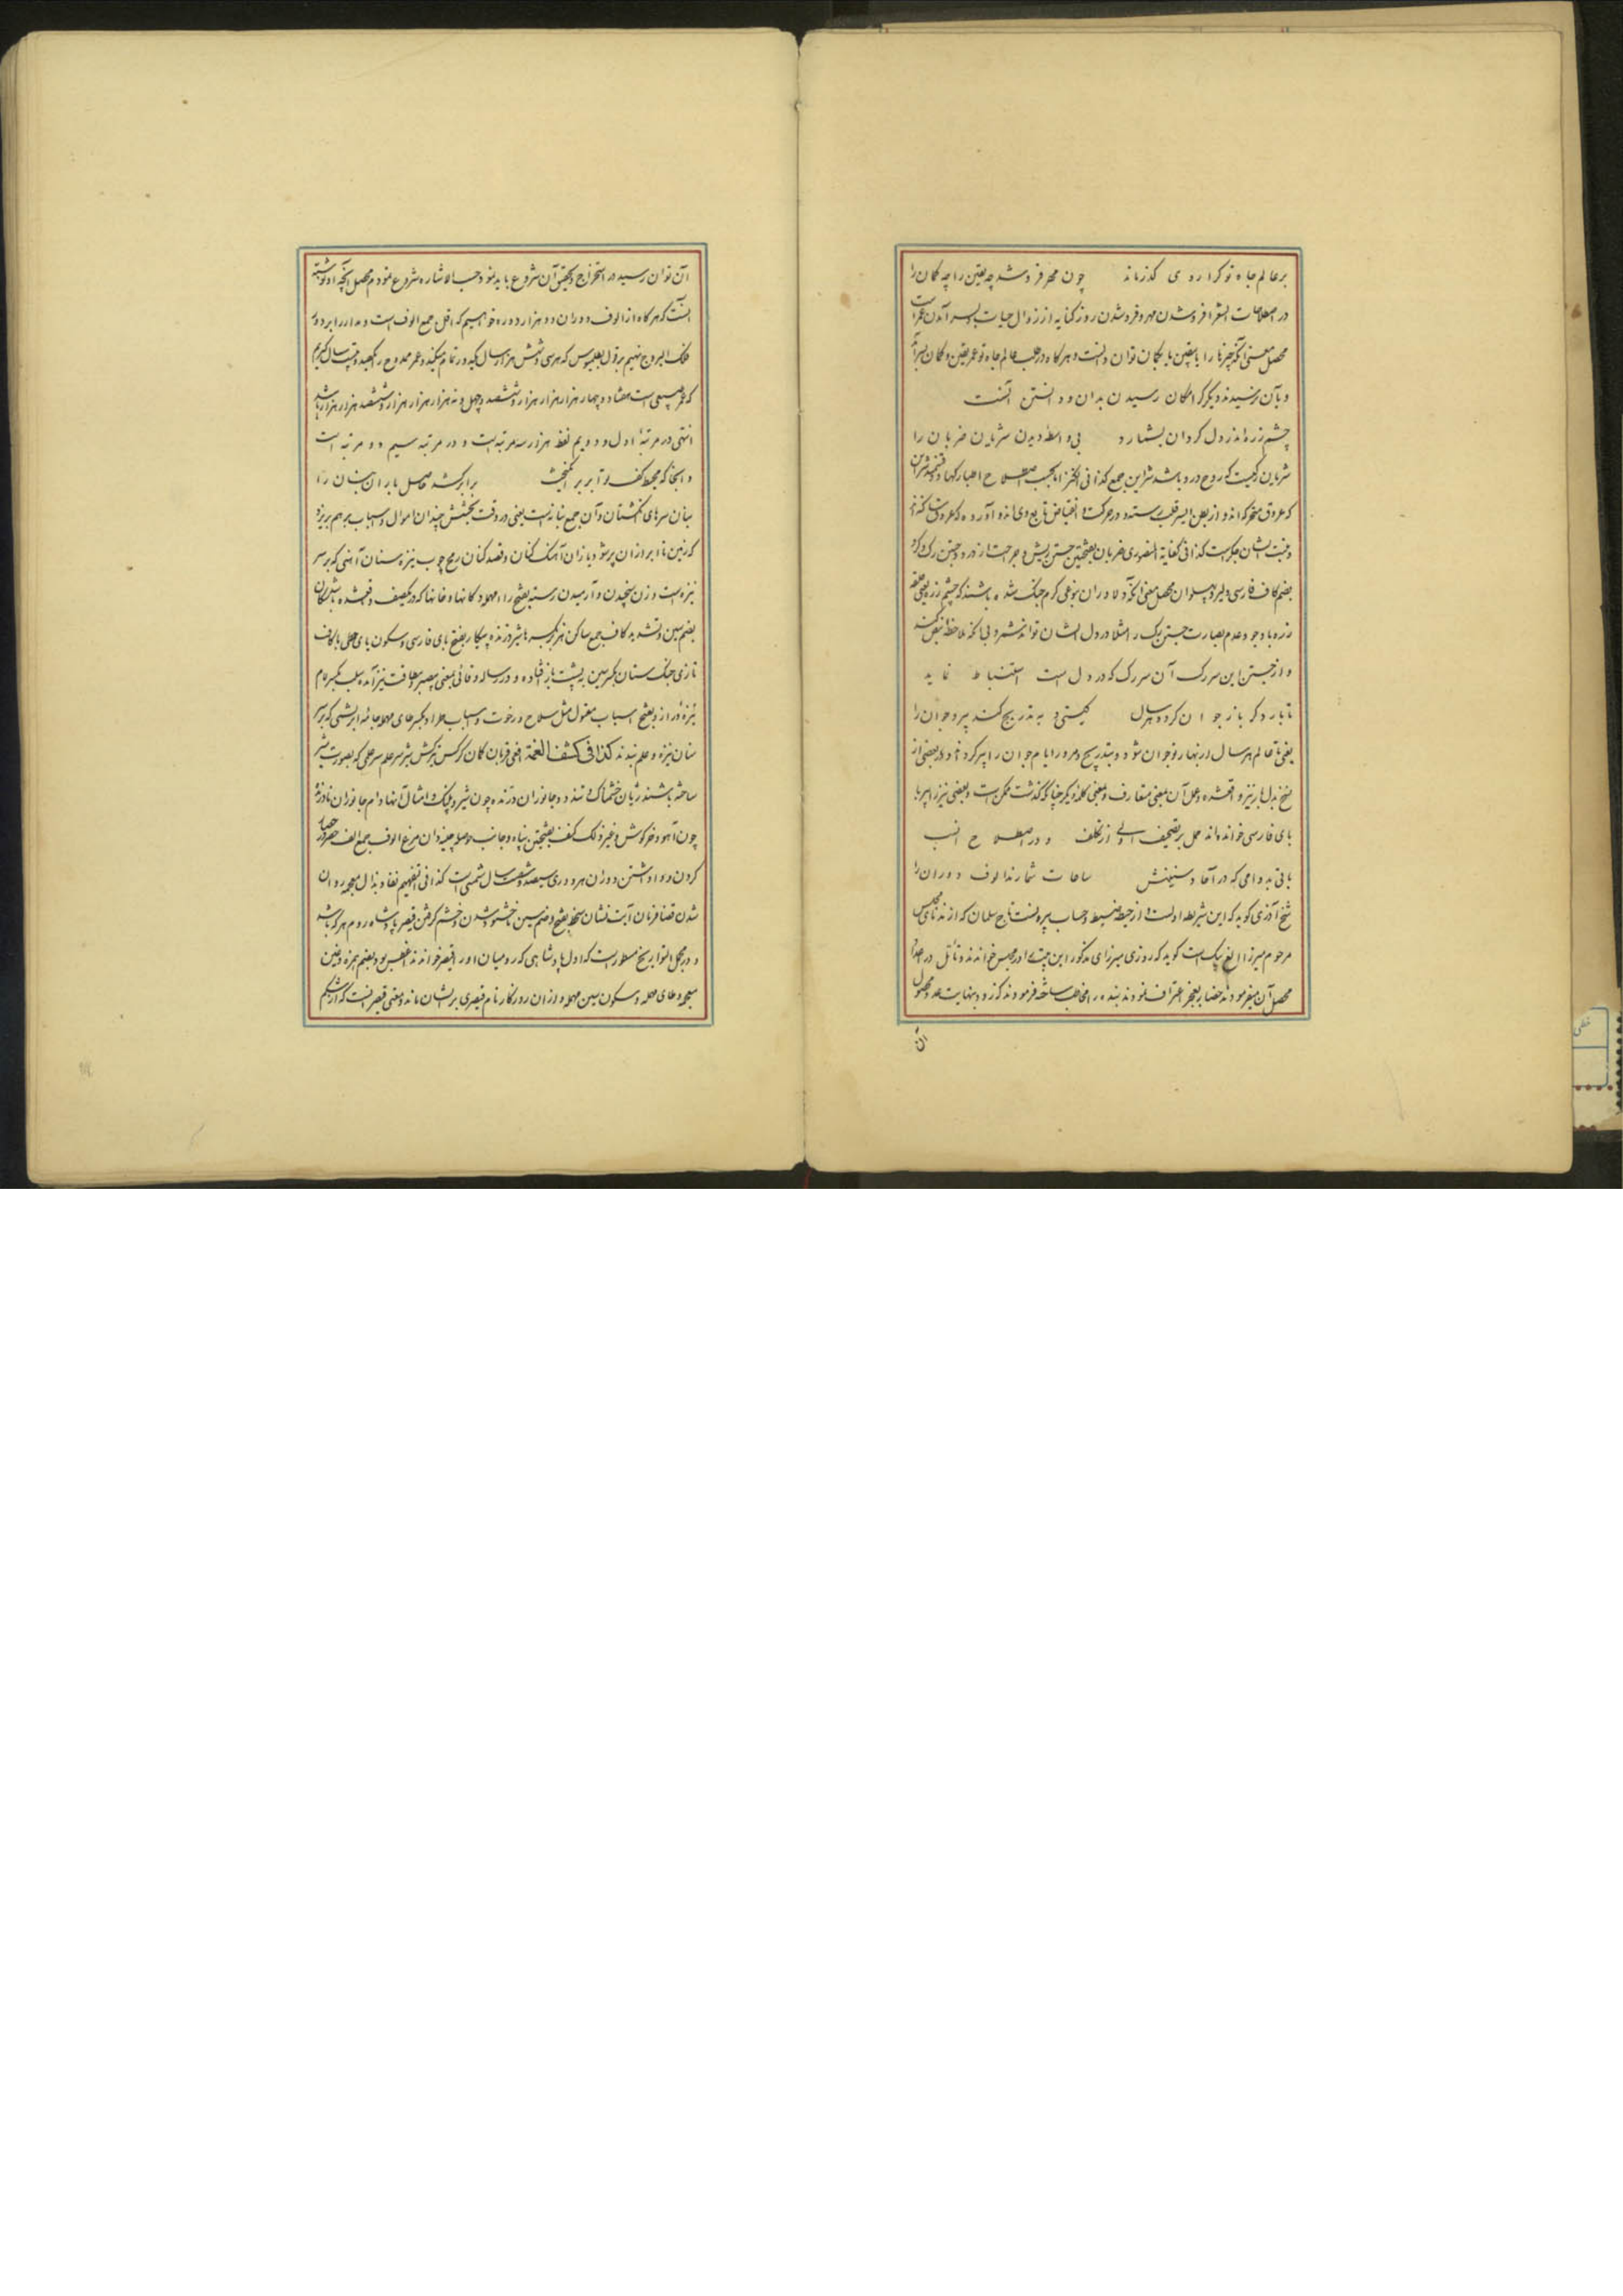 بر عالم جاه تو کرا روی گذر ماند چون مهر فروشد چه یقین را چه کمان را
در اصطلاحات الشعرا فروشدن مهر و فروشدن روز کنایه از زوال حیات و بسر آمدن عمر است
محصل معنی آنکه چیزها را یا بیقین یا بکمان توان دانست و هر کاه در طلب عالم جاه تو عمر یقین و کمان بسر آمد
و بآن نرسیدند دیگر کرا امکان رسیدن بدان و دانستن آنست
چشم زره اندر دل کردان بشمارد بی واسطه دیدن شریان ضربان را
شریان رکیست که روح درو باشد شرایین جمع کذا فی الکنز اما بحسب اصطلاح اطبا رکها دو قسمند شراین
که عروق متحرکه اند و از بطن ایسر قلب رسته و در حرکت انقباض تابع وی اند و آورده که عروق ساکنه اند
و منبت ایشان جکر است کذا فی کفایة المنصوری ضربان بفتحتین جستن ریش و جراحت از درد و جستن رک و کرد
بضم کاف فارسی دلیر و پهلوان محصل معنی آنکه دلاوران بنوعی کرم جنک شده باشند که چشم زره یعنی حلقه
زره با وجود عدم بصارت جستن رک را مثلا در دل ایشان تواند شمرد بی آنکه ملاحظه نبض کند
و از جستن این سر رک آن سر رک که در دل است استنباط نماید
تا بار دکر باز جوان کرده هر سال کیتی و به تدریج کند پیر و جوان را
یعنی تا عالم هر سال از بهار نو جوان شود و بتدریج و مرور ایام جوان را پیر کرداند و در بعضی از
نسخ بدل بار نیز و اقع شده و عل آن بمعنی متعارف و بمعنی کله دیکر چنانکه گذشت ممکن است و بعضی نیز را پیر با
بای فارسی خوانده اند حمل بر تصحیف اولی از تکلف و در اصطلاح انسب
باقی بدوامی که در آحاد سنینش ساعات شمارند الوف دوران را
شیخ آذری کوید که این شریطه اولست و از حیطه ضبط و حساب بیرونست تاج سلمان که از ندمای مجلس
مرحوم میرزا الغ بیک است کوید که روزی میرزای مذکور این بیت را در مجلس خواندند و تأمل در اعداد
محصل آن میفرمودند حضار بعجز اعتراف نمودند بنده را مخاطب ساخته فرمودند که زود بنهایت عدد محصول
آن
آن توان رسید در استخراج و تحقیق آن شروع باید نمود حسب الاشاره شروع نمودم محصل آنچه او نوشته
اینست که هر کاه از الوف دوران ده هزار دوره خواهیم که اقل جمع الوف است و مدار را بر دور
فلک البروج نهیم بر قول بطلمیوس که هر سی و شش هزار سال یکدور تمام میکند و عمر ممدوح را یکصد و بیست سال کیریم
که عمر طبیعی است هفتاد و چهار هزار هزار هزار و ششصد و چهل و نه هزار هزار هزار و ششصد هزار هزار باشد
انتهی در مرتبه اول و دویم لفظ هزار سه مرتبه است و در مرتبه سیم دو مرتبه است
و آنجا که محیط کف تو ابر بر انکیخت برابر کشد حاصل باران بنان را
بنان سرهای انکشتان و آن جمع بنانه است یعنی در وقت بخشش چندان اموال و اسباب بر هم بریزد
که زمین تا ابر از آن پر شود یازان آهنک کنان و قصد کنان رمح چوب نیزه سنان آهنی که بر سر
نیزه است وزن سنجیدن و آرمیدن رسته بفتح راء مهمله دکانها و خانها که در یک صف واقع شده باشد سکان
بضم سین و تشدید کاف جمع ساکن هزبر بکسر ها شیر درنده پیکار بفتح بای فارسی و سکون یای حطی با کاف
تازی جنک ستان بکسر سین بر پشت باز افتاده و در رساله وفائی بمعنی بیصبر و طاقت نیز آمده سلب بکسر لام
نیزه دراز و بفتح اسباب مقتول مثل سلاح و رخوت و اسباب طراد بکسر طای مهمله جامه ابریشمی که بر سر
سنان نیزه و علم بندند کذا فی کشف الغمة افعی قربان کمان کرکس ترکش تیر شیر علم سر علمی که بصورت شیر
ساخته باشند ژیان خشمناک و تند دد جانوران درنده چون شیر و پلنک و امثال آنها دام جانوران نادرنده
چون آهو و خرکوش و غیر ذلک کنف بفتحتین پناه و جانب حوصله چینه دان مرغ الوف جمع الف حصر حصار
کردن و وا داشتن دوران هر دوری سیصد و شصت سال شمسی است کذا فی التفهیم نفاذ بذال معجمه روان
شدن قضا فرمان آیت نشان سخط بفتح و ضم سین ناخشنو شدن و خشم کرفتن قیصر پادشاه روم هر که باشد
و در مجمل التواریخ مسطور است که اول پادشاهی که رومیان او را قیصر خواندند اغطس بود بضم همزه و غین
معجمه و طای مهمله و سکون سین مهمله و از آن روزکار نام قیصری بر ایشان ماند و معنی قیصر اینست که از شکم